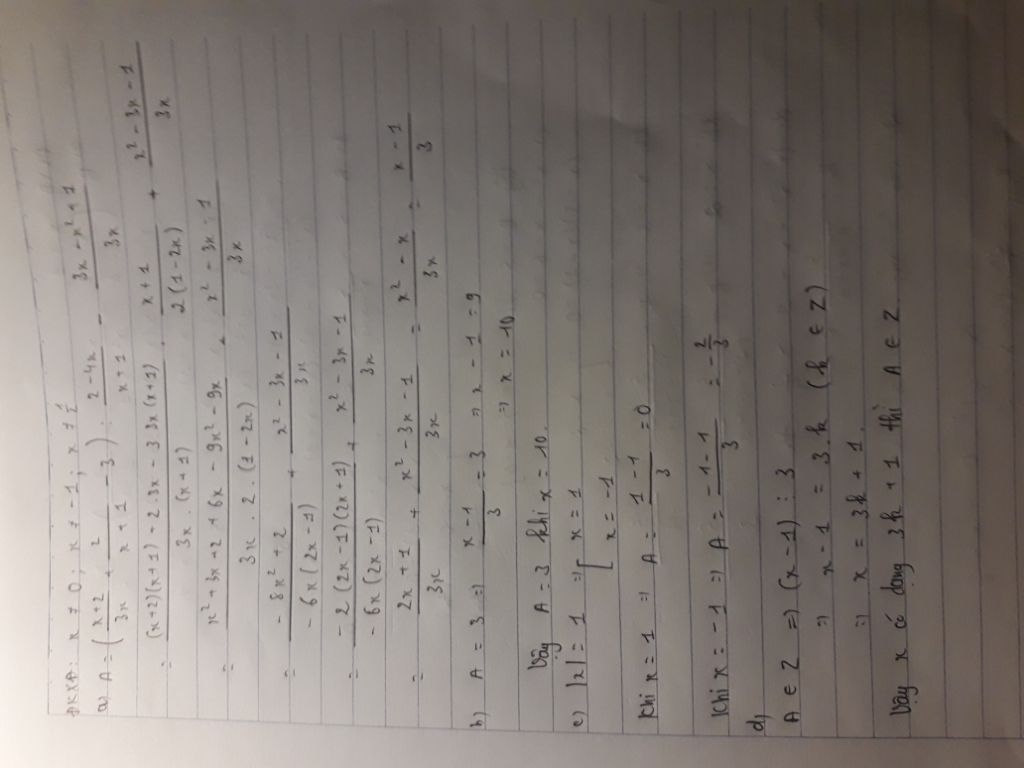 ĐKXĐ: x ≠ 0 ; x ≠ -1 ; x ≠ 1/2
a) A = ( (x+2)/3x + 2/(x+1) - 3 ) : (2-4x)/(x+1) - (3x - x² + 1)/3x
= ((x+2)(x+1) + 2.3x - 3.3x(x+1))/(3x.(x+1)) . (x+1)/(2(1-2x)) + (x² - 3x - 1)/3x
= (x² + 3x + 2 + 6x - 9x² - 9x)/(3x.2.(1-2x)) + (x² - 3x - 1)/3x
= (-8x² + 2)/(-6x(2x-1)) + (x² - 3x - 1)/3x
= (-2(2x-1)(2x+1))/(-6x(2x-1)) + (x² - 3x - 1)/3x
= (2x+1)/3x + (x² - 3x - 1)/3x = (x² - x)/3x = (x-1)/3
b) A = 3 => (x-1)/3 = 3 => x - 1 = 9
=> x = 10
Vậy A = 3 khi x = 10.
c) |x| = 1 => [ x = 1
x = -1
Khi x = 1 => A = (1-1)/3 = 0
Khi x = -1 => A = (-1-1)/3 = -2/3
d)
A ∈ Z => (x-1) ⋮ 3
=> x - 1 = 3.k (k ∈ Z)
=> x = 3k + 1.
Vậy x có dạng 3k + 1 thì A ∈ Z.